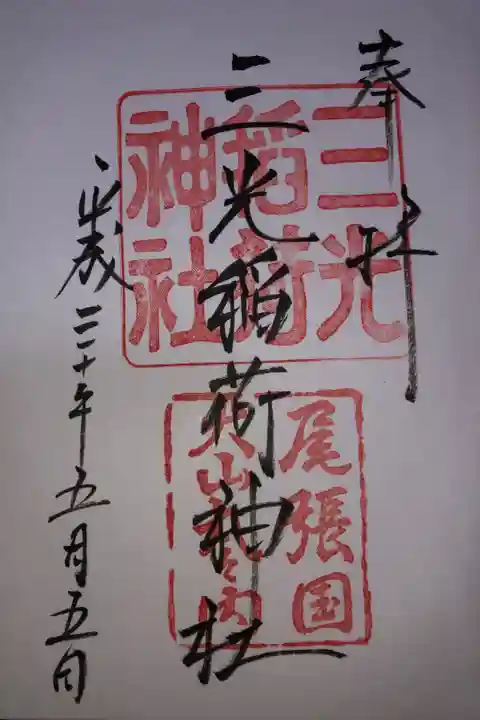 奉拝
三光稲荷神社
平成三十年五月五日
三光
稲荷
神社
尾張国
犬山
内